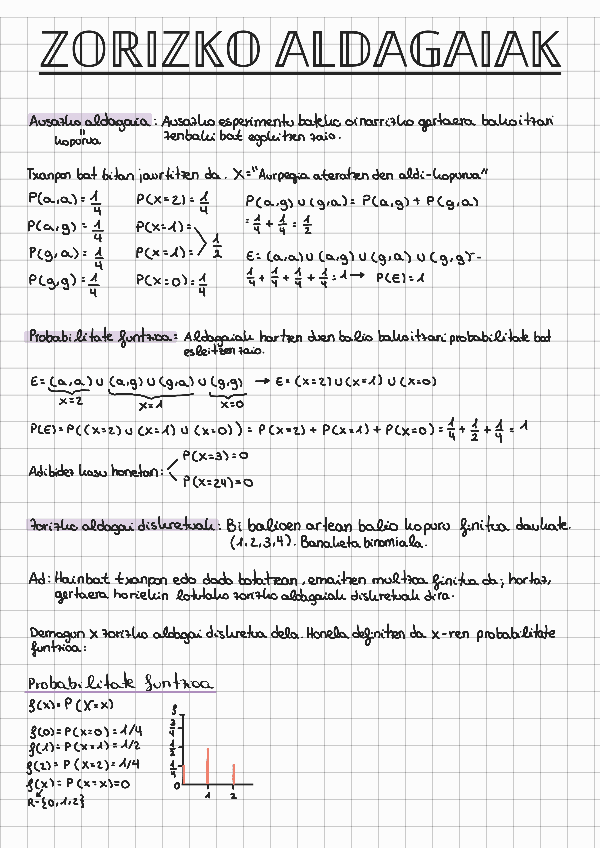 ZORIZKO ALDAGAIAK
Ausazko aldagaia: Ausazko esperimentu bateko oinarrizko gertaera bakoitzari
"
kopurua
zenbaki bat egokitzen zaio.
Txanpon bat bitan jaurtitzen da. X="Aurpegia ateratzen den aldi-kopurua"
P(a,a)=1/4 P(x=2)=1/4 P(a,g)∪(g,a)= P(a,g)+P(g,a)
P(a,g)=1/4 P(x=1)= =1/4+1/4=1/2
P(g,a)=1/4 P(x=1)= 1/2 E=(a,a)∪(a,g)∪(g,a)∪(g,g)-
P(g,g)=1/4 P(x=0)=1/4 1/4+1/4+1/4+1/4=1→ P(E)=1
Probabilitate funtzioa: Aldagaiak hartzen duen balio bakoitzari probabilitate bat
esleitzen zaio.
E=(a,a)∪(a,g)∪(g,a)∪(g,g) → E=(x=2)∪(x=1)∪(x=0)
x=2 x=1 x=0
P(E)=P((x=2)∪(x=1)∪(x=0))=P(x=2)+P(x=1)+P(x=0)=1/4+1/2+1/4=1
P(x=3)=0
Adibidez kasu honetan:
P(x=24)=0
Zorizko aldagai diskretuak: Bi balioen artean balio kopuru finitua daukate.
(1,2,3,4). Banaketa binomiala.
Ad: Hainbat txanpon edo dado botatzean, emaitzen multzoa finitua da; hortaz,
gertaera horiekin lotutako zorizko aldagaiak diskretuak dira.
Demagun X zorizko aldagai diskretua dela. Honela definitzen da x-ren probabilitate
funtzioa:
Probabilitate funtzioa
f(x)=P(X=x)
f(0)=P(x=0)=1/4
f(1)=P(x=1)=1/2
f(2)=P(x=2)=1/4
f(x)=P(x=x)=0
R-{0,1,2}
f
3/4
1/2
1/4
0
1 2